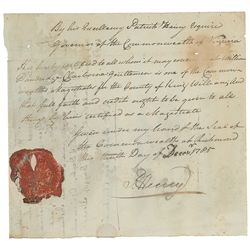 By his Excellency Patrick Henry Esquire
Governor of the Commonwealth of Virginia
It is hereby certified to all whom it may concern that William
of Gentleman is one of the Common
wealths Magistrates for the County of King William, and
that full faith and credit ought to be given to all
things by him certified as a Magistrate
Given under my hand & the Seal of
the Commonwealth at Richmond
this Day of Decr. 1785
P. Henry